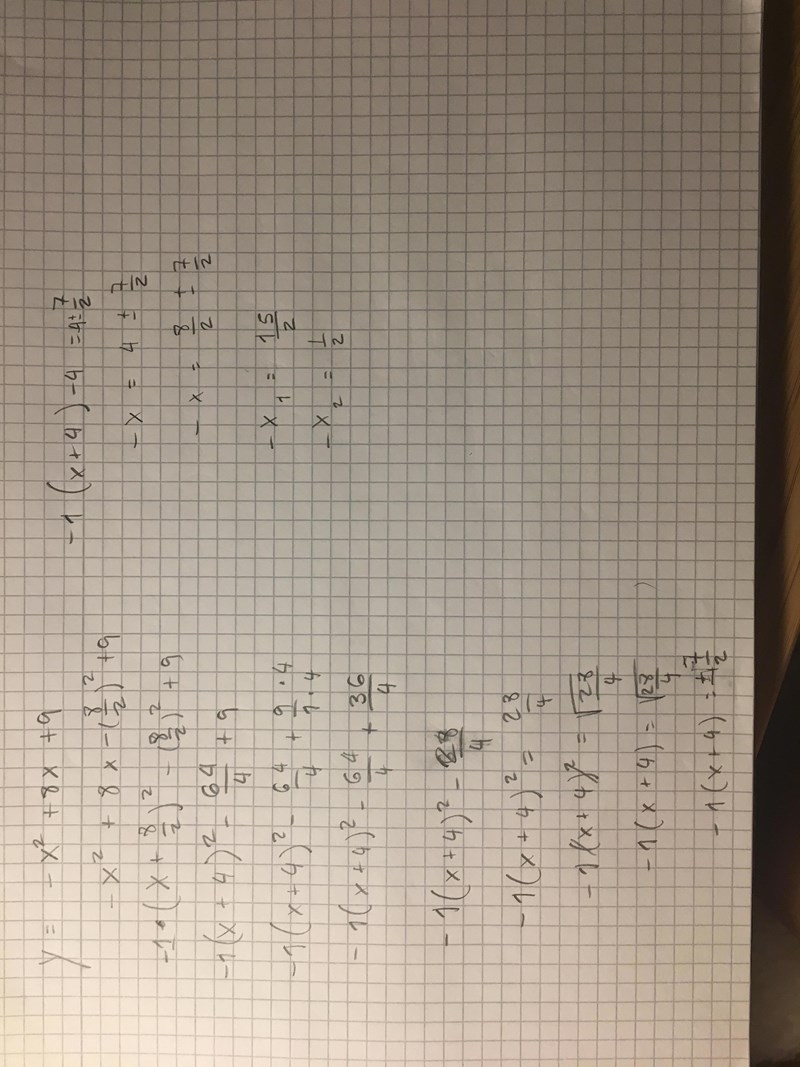 y = -x² + 8x + 9
-x² + 8x - (8/2)² + 9
-1·(x + 8/2)² - (8/2)² + 9
-1(x + 4)² - 64/4 + 9
-1(x+4)² - 64/4 + 9·4/1·4
-1(x+4)² - 64/4 + 36/4
-1(x+4)² - 28/4
-1(x+4)² = 28/4
-1(x+4)² = √28/4
-1(x+4) = √28/4
-1(x+4) = ±7/2
-1(x+4)-4 = 4±7/2
-x = 4 ± 7/2
-x = 8/2 ± 7/2
-x₁ = 15/2
-x₂ = 1/2